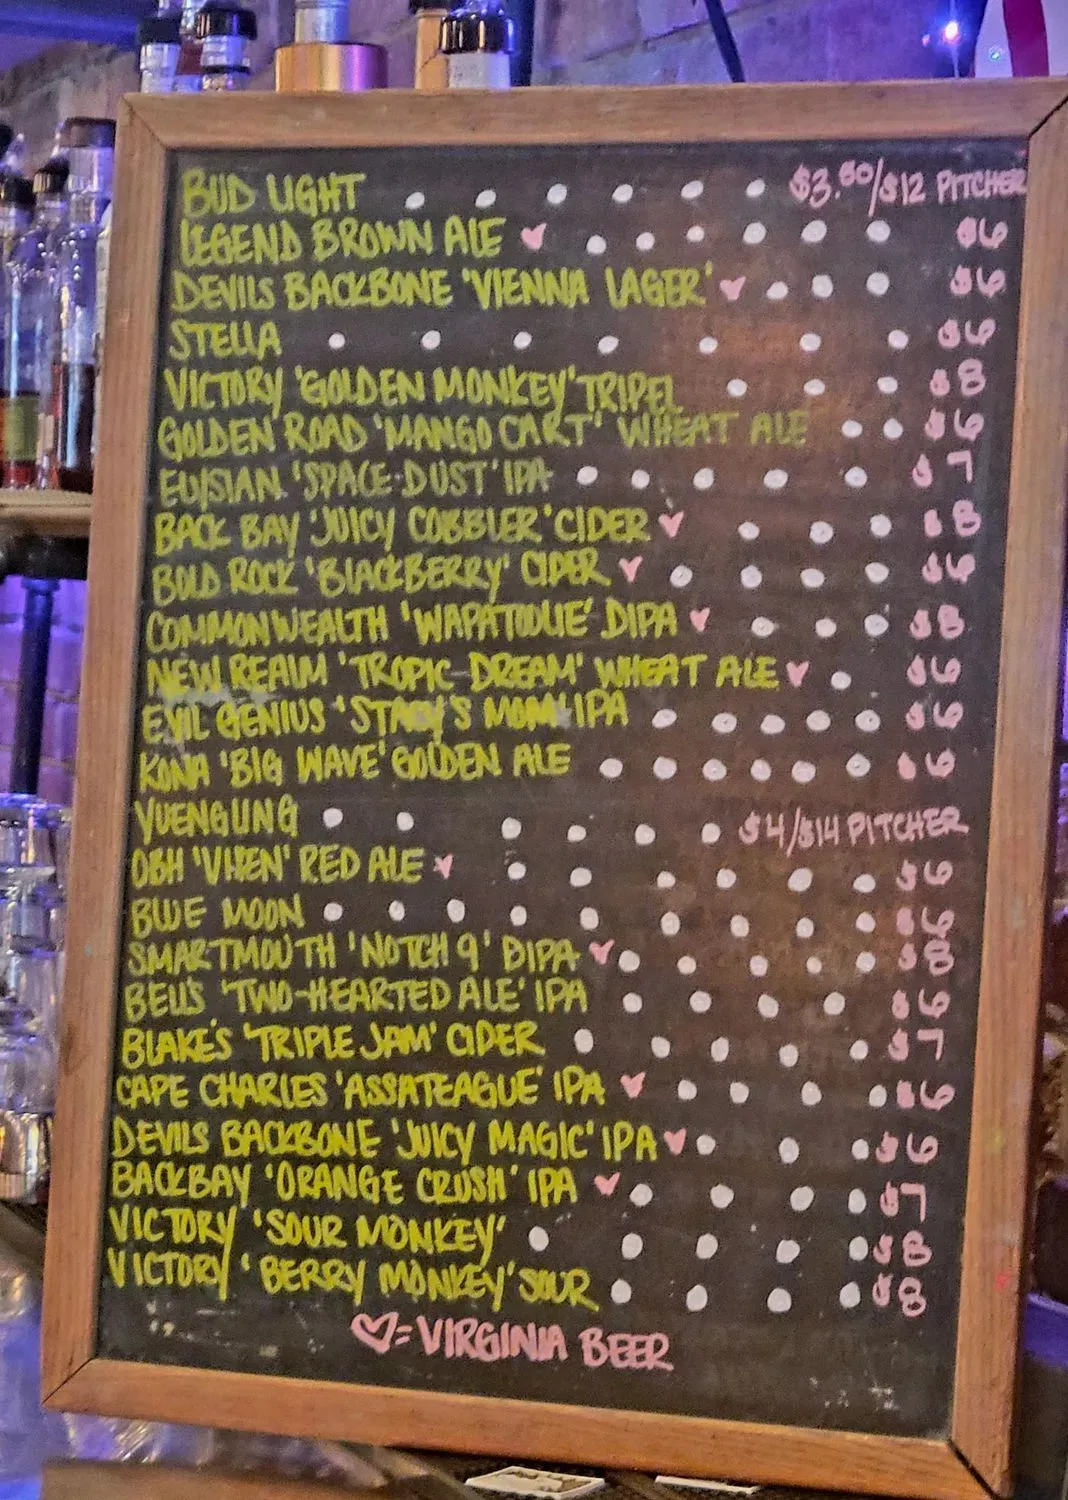 BUD LIGHT $3.50/$12 PITCHER
LEGEND BROWN ALE ♥ $6
DEVILS BACKBONE 'VIENNA LAGER' ♥ $6
STELLA $6
VICTORY 'GOLDEN MONKEY' TRIPEL $8
GOLDEN ROAD 'MANGO CART' WHEAT ALE $6
ELYSIAN 'SPACE-DUST' IPA $7
BACK BAY 'JUICY COBBLER' CIDER ♥ $8
BOLD ROCK 'BLACKBERRY' CIDER ♥ $6
COMMONWEALTH 'WAPATOOLIE' DIPA ♥ $8
NEW REALM 'TROPIC-DREAM' WHEAT ALE ♥ $6
EVIL GENIUS 'STACY'S MOM' IPA $6
KONA 'BIG WAVE' GOLDEN ALE $6
YUENGLING $4/$14 PITCHER
OBH 'VIXEN' RED ALE ♥ $6
BLUE MOON $6
SMARTMOUTH 'NOTCH 9' DIPA ♥ $8
BELL'S 'TWO-HEARTED ALE' IPA $6
BLAKE'S 'TRIPLE JAM' CIDER $7
CAPE CHARLES 'ASSATEAGUE' IPA ♥ $6
DEVILS BACKBONE 'JUICY MAGIC' IPA ♥ $6
BACKBAY 'ORANGE CRUSH' IPA ♥ $7
VICTORY 'SOUR MONKEY' $8
VICTORY 'BERRY MONKEY' SOUR $8
♡=VIRGINIA BEER